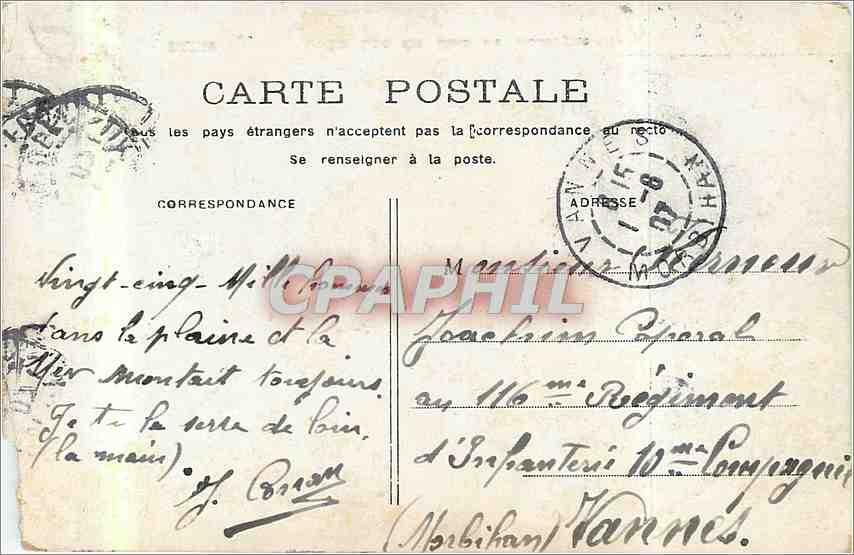 CARTE POSTALE
Tous les pays étrangers n'acceptent pas la correspondance au recto
Se renseigner à la poste.
CORRESPONDANCE
ADRESSE
VANNES MORBIHAN
CPAPHIL
Vingt-cinq-Mille
dans la plaine et la
Mer montait toujours
Je te la serre de loin,
(la main)
J. Conan
Monsieur
Joachim Caporal
au 116me Régiment
d'Infanterie 10me Compagnie
(Morbihan) Vannes.